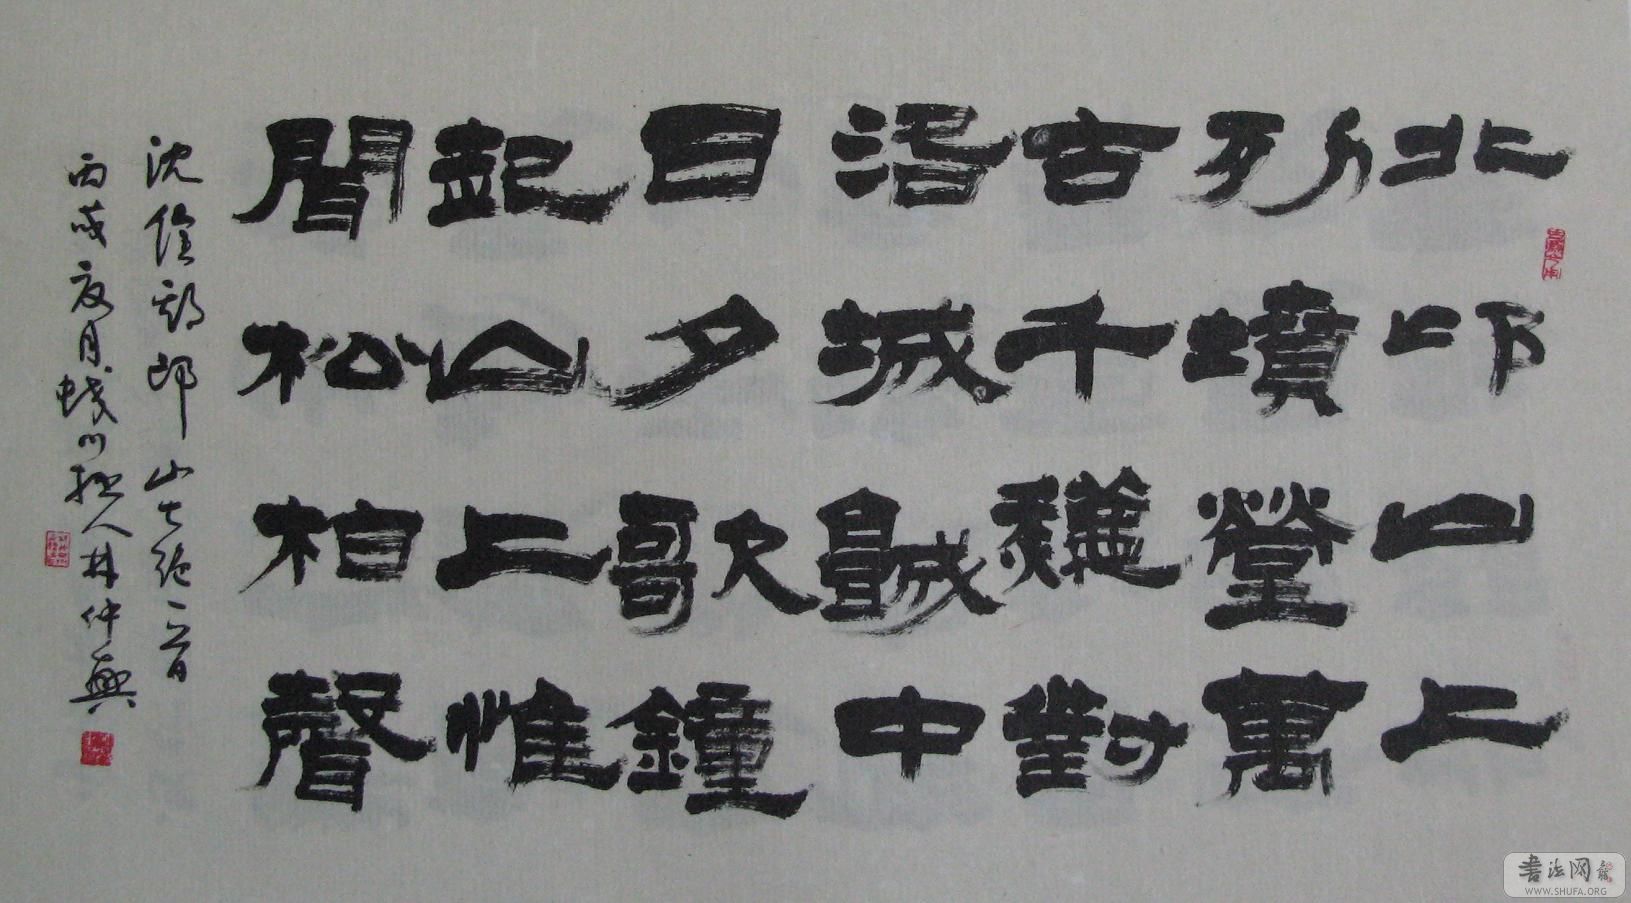 北邙山上
列墳塋萬
古千龝對
洛城城中
日夕歌鐘
起山上惟
聞松柏聲
沈佺期邙山七絕一首
丙戌夏月川人仲興
書法网
WWW.SHUFA.ORG